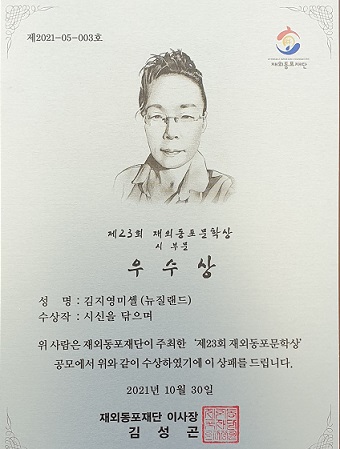 제2021-05-003호
재외동포재단
제23회 재외동포문학상
시 부문
우 수 상
성 명 : 김지영미셸 (뉴질랜드)
수상작 : 시신을 닦으며
위 사람은 재외동포재단이 주최한 '제23회 재외동포문학상'
공모에서 위와 같이 수상하였기에 이 상패를 드립니다.
2021년 10월 30일
재외동포재단 이사장
김 성 곤